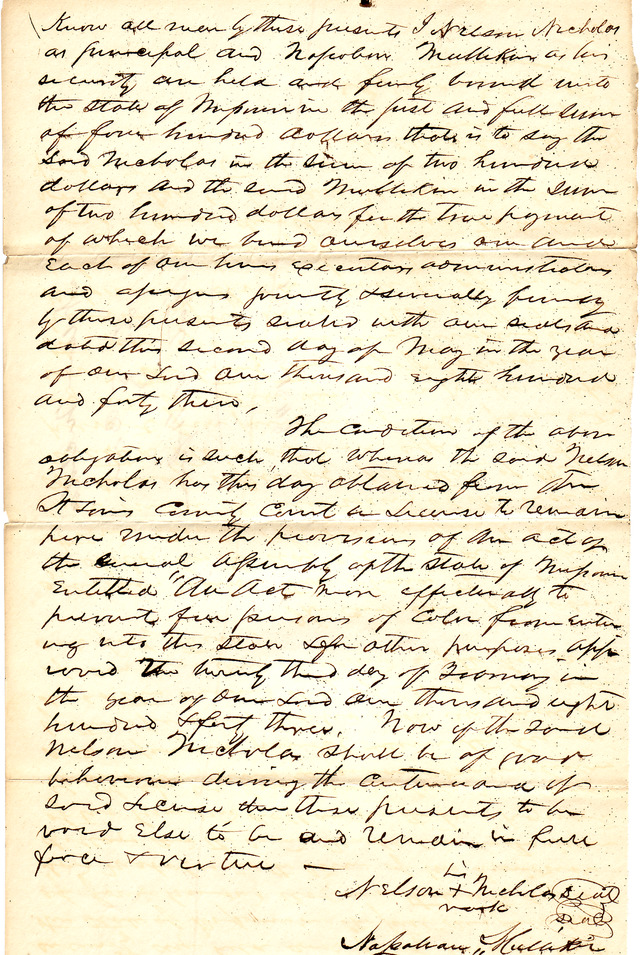 Know all men by these presents I Nelson Nicholas
as principal and Napoleon Mullikin as his
security are held and firmly bound unto
the state of Missouri in the just and full sum
of four hundred dollars that is to say the
said Nicholas in the sum of two hundred
dollars and the said Mullikin in the sum
of two hundred dollars for the true payment
of which we bind ourselves our and
each of our heirs executors administrators
and assigns jointly & severally firmly
by these presents sealed with our seals and
dated this second day of May in the year
of our Lord one thousand eight hundred
and forty three,
The condition of the above
obligation is such, that whereas the said Nelson
Nicholas has this day obtained from the
St Louis County Court a License to remain
here under the provisions of an act of
the General Assembly of the state of Missouri
Entitled "An Act" more effectually to
prevent free persons of Color from enter
ing into this State & for other purposes app
roved the twenty third day of
the year of our Lord one thousand eight
hundred & forty three. Now if the said
Nelson Nicholas shall be of good
behaviour during the continuance of
said License then these presents to be
void Else to be and remain in full
force & virtue —
his
Nelson + Nicholas Seal
mark
Seal
Napoleon Mullikin